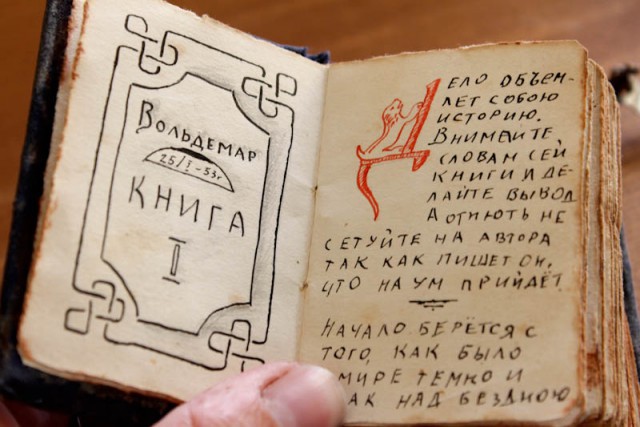 Вольдемар
25/I-53г
КНИГА
II
Дело объем-
лет собою
историю.
Внимейте
словам сей
книги и де-
лайте вывод
А отнють не
сетуйте на автора
так как пишет он,
что на ум прийдёт.
Начало берётся с
того, как было
мире темно и
как над бездною